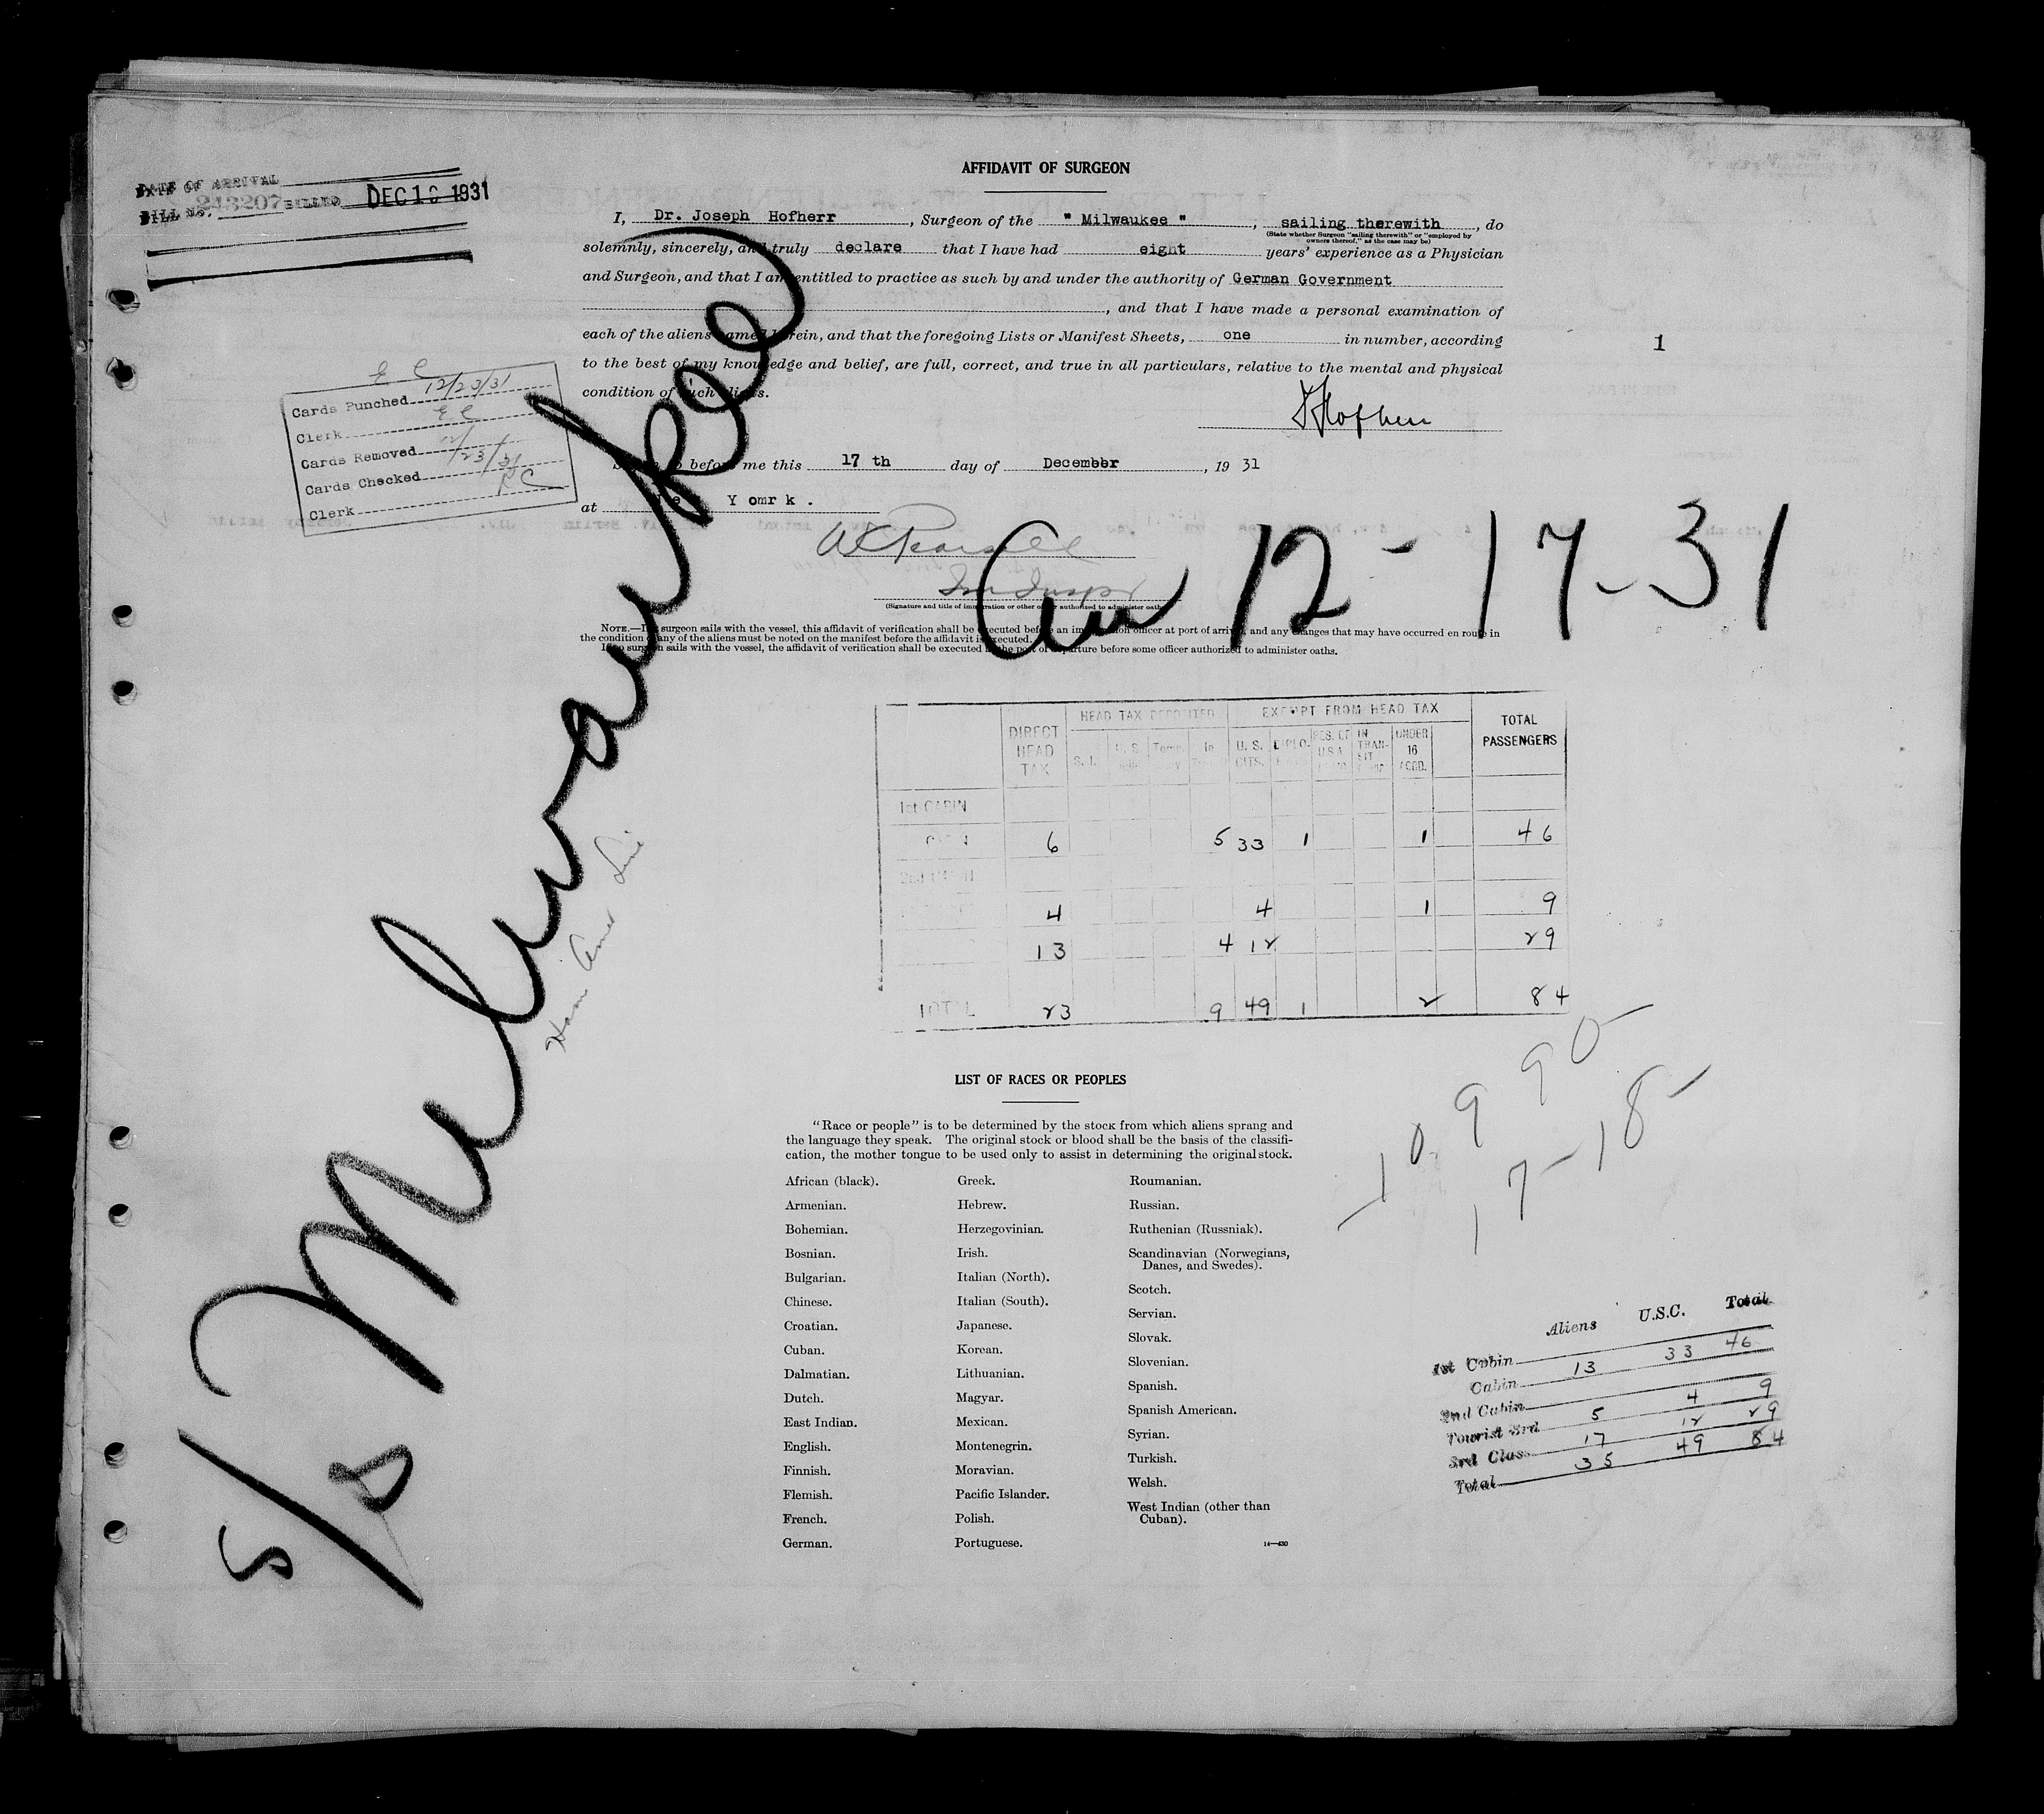 AFFIDAVIT OF SURGEON
DATE OF ARRIVAL
BILL No. 243207 BILLED DEC 1931
I, Dr. Joseph Hofherr, Surgeon of the " Milwaukee ", sailing therewith, do
(State whether Surgeon "sailing therewith" or "employed by
owners thereof," as the case may be)
solemnly, sincerely, and truly declare that I have had eight years' experience as a Physician
and Surgeon, and that I am entitled to practice as such by and under the authority of German Government
, and that I have made a personal examination of
each of the aliens named herein, and that the foregoing Lists or Manifest Sheets, one in number, according
to the best of my knowledge and belief, are full, correct, and true in all particulars, relative to the mental and physical
condition of such aliens.
1
J Hofherr
E C
Cards Punched 12/23/31
Clerk E C
Cards Removed 12/
Cards Checked 23/31
Clerk E C
before me this 17 th day of December, 19 31
at Y omr k .
Imm Inspr
(Signature and title of immigration or other officer authorized to administer oaths)
Arr 12-17-31
NOTE.—If a surgeon sails with the vessel, this affidavit of verification shall be executed before an immigration officer at port of arrival, and any changes that may have occurred en route in
the condition of any of the aliens must be noted on the manifest before the affidavit is executed.
If no surgeon sails with the vessel, the affidavit of verification shall be executed at the port of departure before some officer authorized to administer oaths.
S/S Milwaukee
Ham Amer Line
DIRECT HEAD TAX
HEAD TAX DEPOSITED
EXEMPT FROM HEAD TAX
TOTAL PASSENGERS
S.I. U.S. Temp. In U.S. CITS. DIPLO. RES. OF U.S.A. IN TRANSIT UNDER 16 ACCD.
1st CABIN
CABIN 6 5 33 1 1 46
2nd CABIN
4 4 1 9
13 4 12 29
TOTAL 23 9 49 1 2 84
LIST OF RACES OR PEOPLES
"Race or people" is to be determined by the stock from which aliens sprang and
the language they speak. The original stock or blood shall be the basis of the classifi-
cation, the mother tongue to be used only to assist in determining the original stock.
African (black).
Armenian.
Bohemian.
Bosnian.
Bulgarian.
Chinese.
Croatian.
Cuban.
Dalmatian.
Dutch.
East Indian.
English.
Finnish.
Flemish.
French.
German.
Greek.
Hebrew.
Herzegovinian.
Irish.
Italian (North).
Italian (South).
Japanese.
Korean.
Lithuanian.
Magyar.
Mexican.
Montenegrin.
Moravian.
Pacific Islander.
Polish.
Portuguese.
Roumanian.
Russian.
Ruthenian (Russniak).
Scandinavian (Norwegians,
Danes, and Swedes).
Scotch.
Servian.
Slovak.
Slovenian.
Spanish.
Spanish American.
Syrian.
Turkish.
Welsh.
West Indian (other than
Cuban).
14—430
-10,990-
17-18-
Aliens U.S.C. Total
1st Cabin
Cabin 13 33 46
2nd Cabin
Tourist 3rd 5 4 9
3rd Class 17 12 29
Total 35 49 84